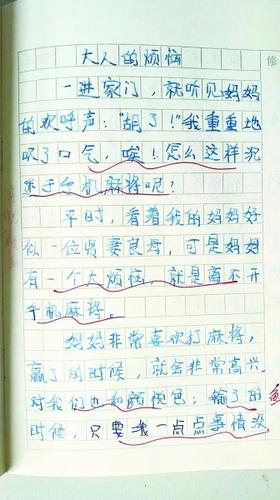 大人的烦恼
一进家门，就听见妈妈
的欢呼声："胡了！"我重重地
叹了口气，唉！怎么这样沉
迷于手机麻将呢？
平时，看着我的妈妈好
似一位贤妻良母，可是妈妈
有一个大烦恼，就是离不开
手机麻将。
妈妈非常喜欢打麻将，
赢了的时候，就会非常高兴，
对我们也和颜悦色；输了的
时候，只要我一点点事情没